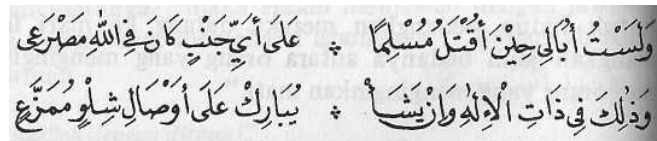 وَلَسْتُ أُبَالِى حِيْنَ أُقْتَلُ مُسْلِمًا ∴ عَلَى أَيِّ جَنْبٍ كَانَ فِي اللهِ مَصْرَعِى
وَذٰلِكَ فِي ذَاتِ الْاِلٰهِ وَاِنْ يَشَأْ ∴ يُبَارِكْ عَلَى أَوْصَالِ شِلْوٍ مُمَزَّعٍ